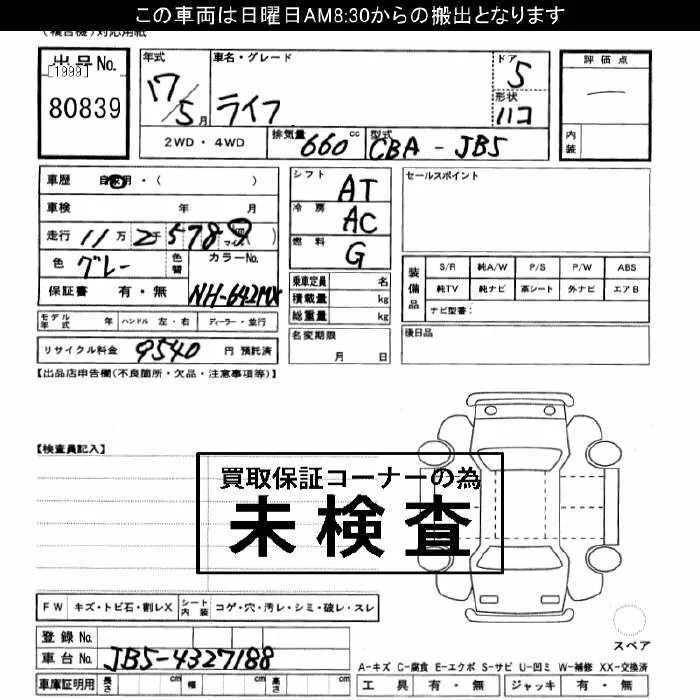 この車両は日曜日AM8:30からの搬出となります
(複合機)対応用紙
出品No.
[1999]
80839
年式
17/5月
車名・グレード
ライフ
ドア
5
形状
ハコ
評価点
一
内装
2WD・4WD
排気量 660 cc
型式 CBA-JB5
車歴 自家用・( )
車検 年 月
走行 11万2千578 km マイル( )
色 グレー 色替
カラーNo. NH-642MX
保証書 有・無
モデル年式 年 ハンドル 左・右 ディーラー・並行
リサイクル料金 9540 円 預託済
シフト AT
冷房 AC
燃料 G
乗車定員 名
積載量 kg
総重量 kg
名変期限
月 日
セールスポイント
装備品
S/R 純A/W P/S P/W ABS
純TV 純ナビ 革シート 外ナビ エアB
ナビ型番:
後日品
【出品店申告欄(不良箇所・欠品・注意事項等)】
【検査員記入】
買取保証コーナーの為
未検査
FW キズ・トビ石・割レX シート内装 コゲ・穴・汚レ・シミ・破レ・スレ
登録No.
車台No. JB5-4327188
車庫証明用 長さ cm 幅 cm 高さ cm
スペア
A-キズ C-腐食 E-エクボ S-サビ U-凹ミ W-補修 XX-交換済
工具 有・無 ジャッキ 有・無